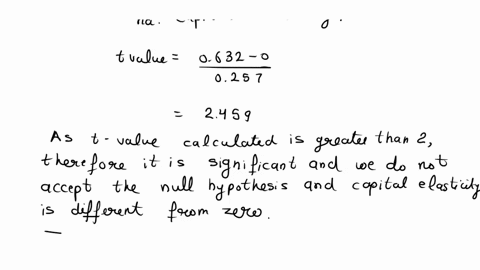 t value = 0.632 - 0
0.257
= 2.459
As t-value calculated is greater than 2,
therefore it is significant and we do not
accept the null hypothesis and capital elasticity
is different from zero.